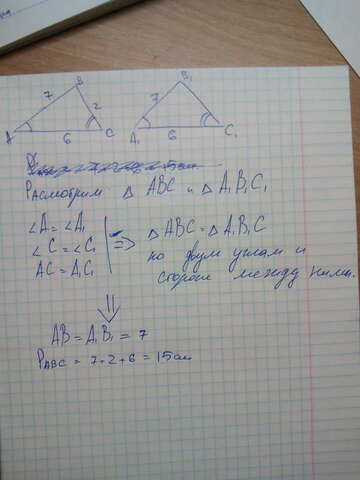 B B₁
7 2 7
A 6 C A₁ 6 C₁
Расмотрим △ ABC и △ A₁B₁C₁
∠A = ∠A₁
∠C = ∠C₁
AC = A₁C₁
=> △ ABC = △ A₁B₁C
по двум углам и
стороне между ними.
AB = A₁B₁ = 7
PABC = 7+2+6 = 15см